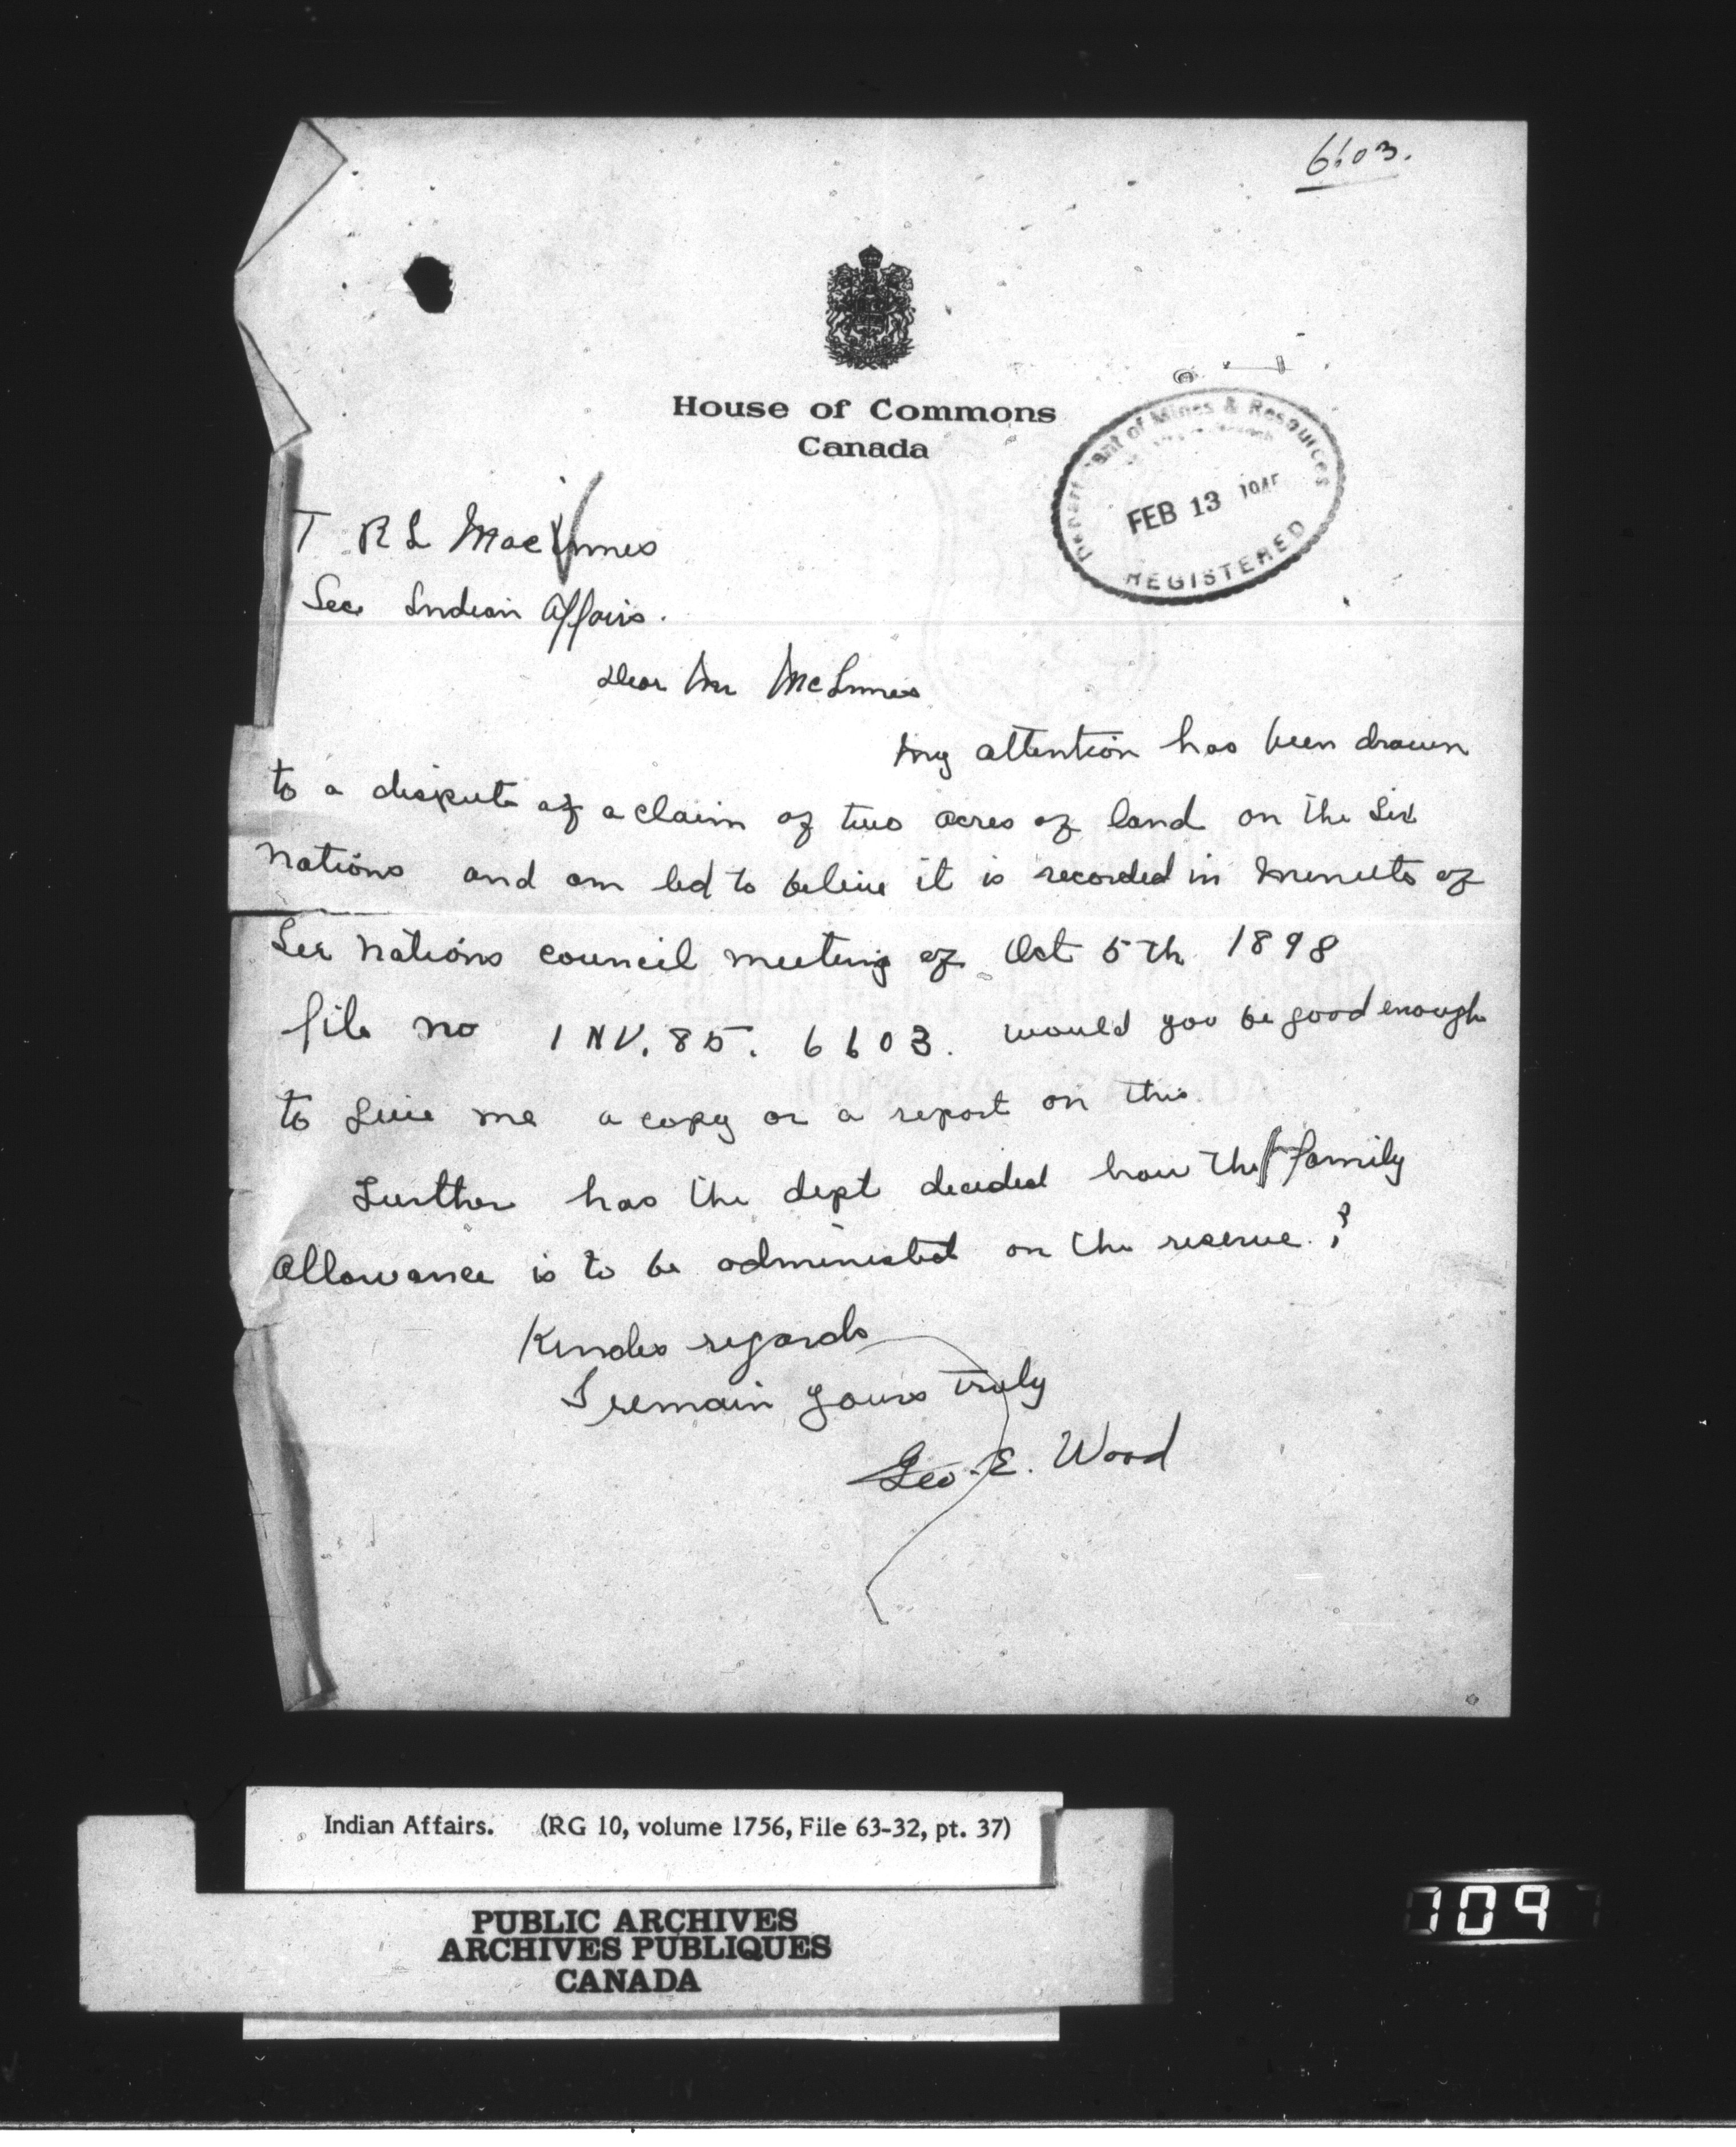 6603.
House of Commons
Canada
Department of Mines & Resources
FEB 13 1945
REGISTERED
T R L MacInnes
Sec Indian Affairs.
Dear Mr McInnes
My attention has been drawn
to a dispute of a claim of two acres of land on the Six
Nations and am led to belive it is recorded in minuets of
Six Nations council meeting of Oct 5th 1898
file no INV. 85. 6603. would you be good enough
to give me a copy or a report on this.
Further has the dept decided how the family
Allowance is to be administed on the reserve?
Kindes regards
I remain yours truly
Geo. E. Wood
Indian Affairs. (RG 10, volume 1756, File 63-32, pt. 37)
PUBLIC ARCHIVES
ARCHIVES PUBLIQUES
CANADA
109